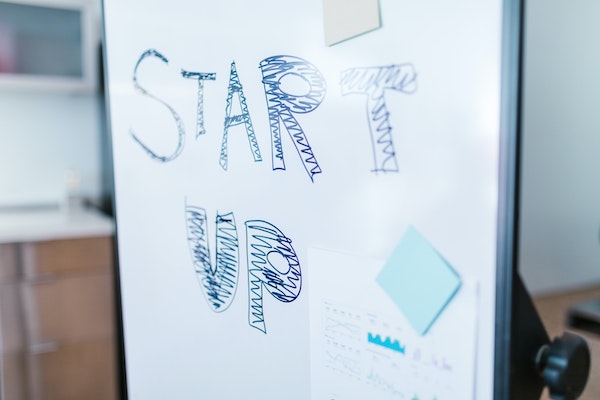 START
UP